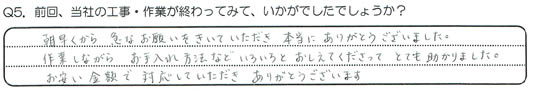 Q5. 前回、当社の工事・作業が終わってみて、いかがでしたでしょうか？
朝早くから 急なお願いをきいていただき 本当に ありがとうございました。
作業しながら お手入れ方法など いろいろと おしえてくださって とても 助かりました。
お安い 金額で 対応していただき ありがとうございます